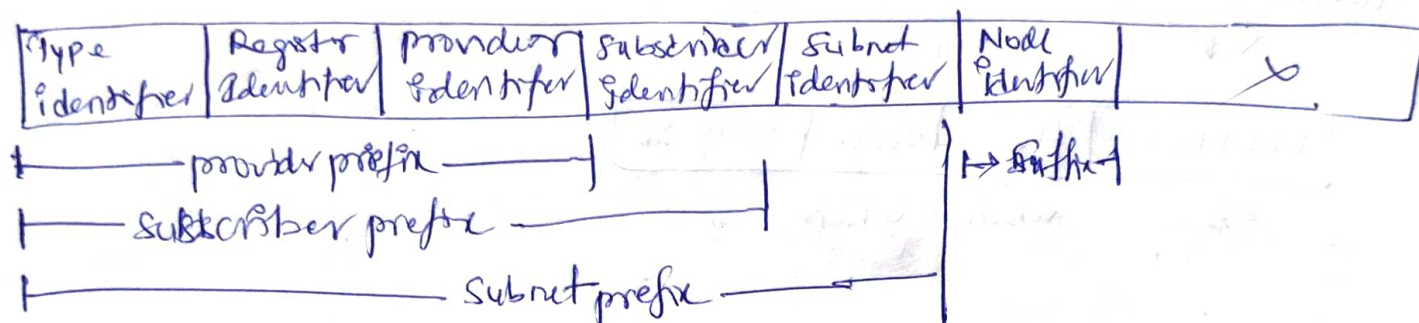 Type identifier
Register Identifier
provider identifier
subscriber identifier
subnet identifier
Node identifier
provider prefix
suffix
subscriber prefix
subnet prefix